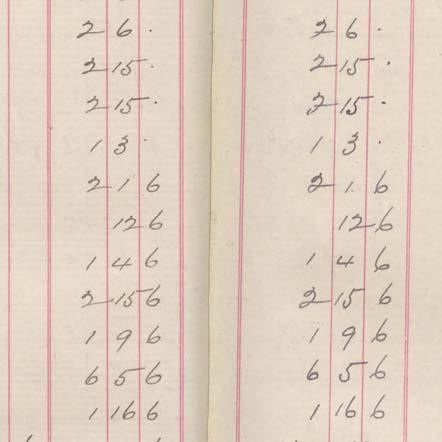 2 6 · 2 6 ·
2 15 · 2 15 ·
2 15 · 2 15 ·
1 3 · 1 3 ·
2 1 6 2 1 6
12 6 12 6
1 4 6 1 4 6
2 15 6 2 15 6
1 9 6 1 9 6
6 5 6 6 5 6
1 16 6 1 16 6